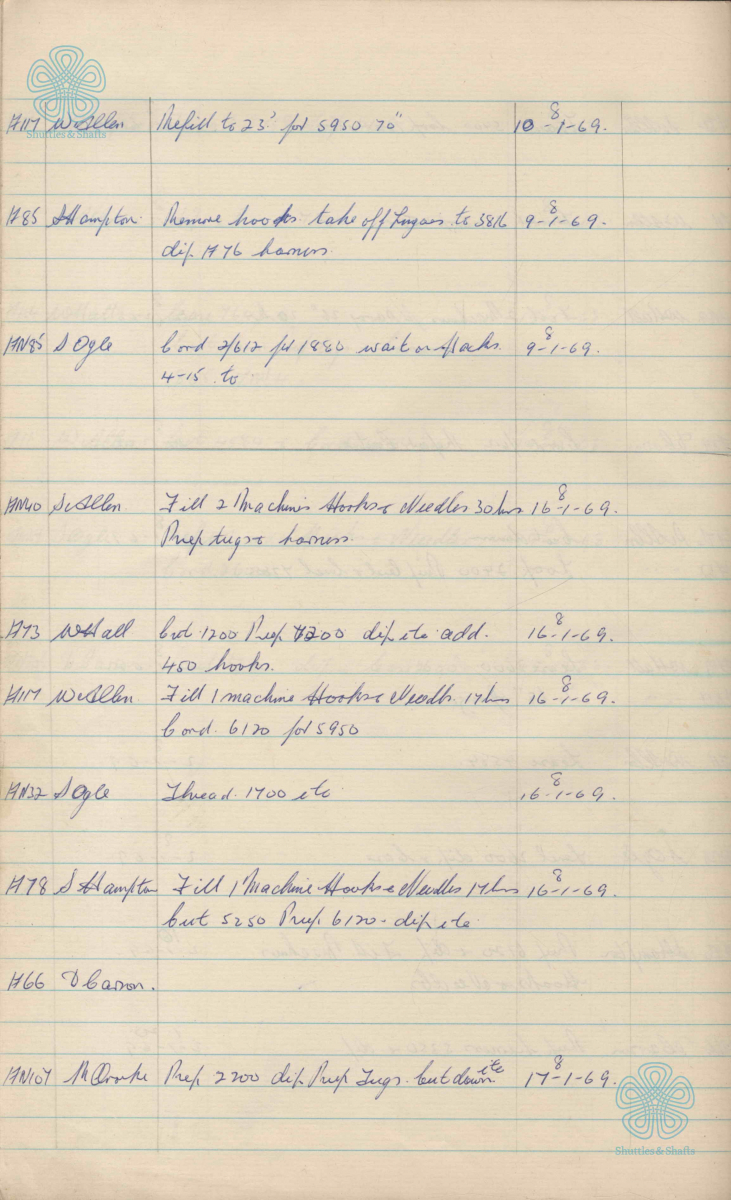 Shuttles & Shafts
A117 W Allen Refill to 23" for 5950 70" 10-8-1-69.
A85 S Hampton. Remove hooks take off Lingoes to 3816 9-8-1-69.
dip A76 harness.
AN85 S Ogle Cord 2/612 for 1880 wait on slacks. 9-8-1-69.
4-15 to
AN40 S Allen Fill 2 Machines Hooks & Needles 30 hrs 16-8-1-69.
Prep tugs & harness.
A73 W Hall Cut 1200 Prep 7200 dip etc add. 16-8-1-69.
450 hooks.
A117 W Allen Fill 1 machine Hooks & Needles 17 hrs 16-8-1-69.
Cord 6120 for 5950
AN32 S Ogle Thread 1700 etc 16-8-1-69.
A78 S Hampton Fill 1 Machine Hooks & Needles 17 hrs 16-8-1-69.
Cut 5250 Prep 6120 - dip etc
A66 D Carson.
AN107 M Prep 2200 dip Prep Tugs. Cut down etc 17-8-1-69.
Shuttles & Shafts